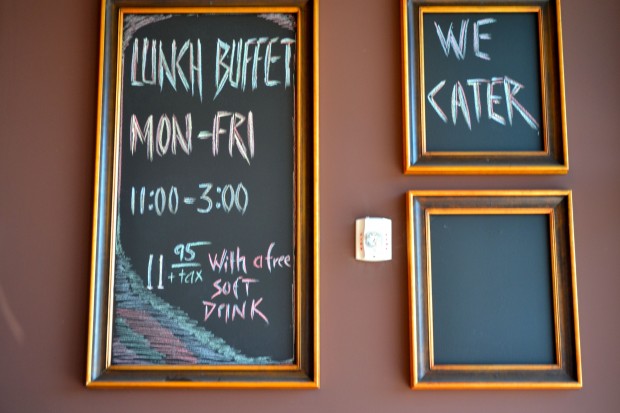 LUNCH BUFFET
MON-FRI
11:00-3:00
11 95 +tax With a free
SOFT
DRINK
WE
CATER